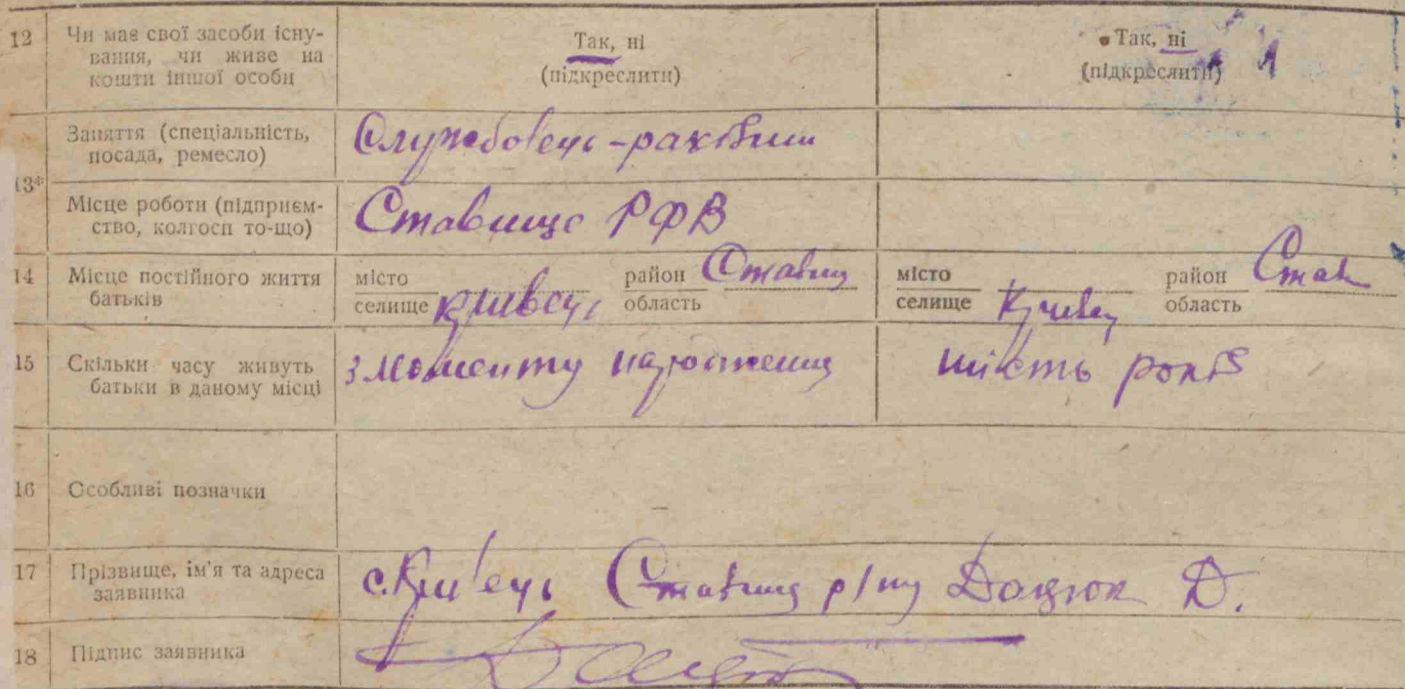 12 Чи має свої засоби існу-
вання, чи живе на
кошти іншої особи
Так, ні
(підкреслити)
Так, ні
(підкреслити)
13*
Заняття (спеціальність,
посада, ремесло)
Службовець-рахівник
Місце роботи (підприєм-
ство, колгосп то-що)
Ставище РФВ
14 Місце постійного життя
батьків
місто район Ставищ
селище Кривець область
місто район Став
селище Кривец область
15 Скільки часу живуть
батьки в даному місці
з моменту народження
шість років
16 Особливі позначки
17 Прізвище, ім'я та адреса
заявника
с. Кривець Ставищ р/ну Доцюк Д.
18 Підпис заявника